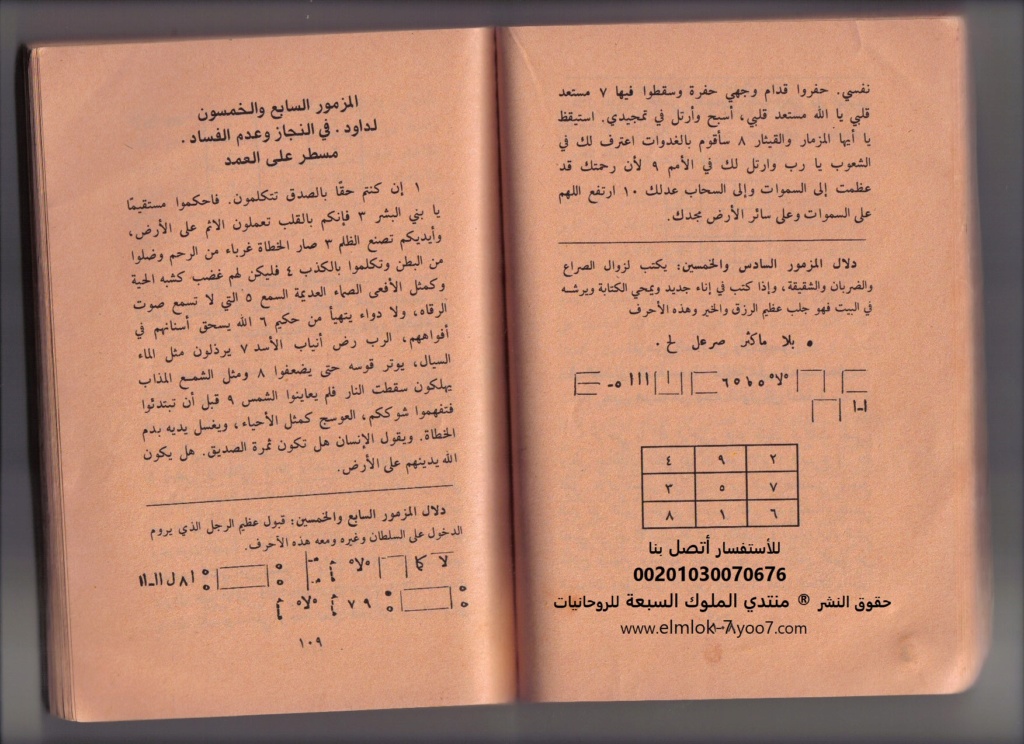 نفسي. حفروا قدام وجهي حفرة وسقطوا فيها ٧ مستعد
قلبي يا الله مستعد قلبي، أسبح وأرتل في تمجيدي. استيقظ
يا أيها المزمار والقيثار ٨ سأقوم بالغدوات اعترف لك في
الشعوب يا رب وارتل لك في الأمم ٩ لأن رحمتك قد
عظمت إلى السموات وإلى السحاب عدلك ١٠ ارتفع اللهم
على السموات وعلى سائر الأرض مجدك.
دلال المزمور السادس والخمسين: يكتب لزوال الصراع
والضربان والشقيقة، وإذا كتب في إناء جديد ويمحي الكتابة ويرشه
في البيت فهو جلب عظيم الرزق والخير وهذه الأحرف
بلا ماكثر صرعل لح .
٢ ٩ ٤
٧ ٥ ٣
٦ ١ ٨
للأستفسار أتصل بنا
00201030070676
حقوق النشر ® منتدي الملوك السبعة للروحانيات
www.elmlok-7Ayoo7.com
المزمور السابع والخمسون
لداود . في النجاز وعدم الفساد .
مسطر على العمد
١ إن كنتم حقًا بالصدق تتكلمون. فاحكموا مستقيمًا
يا بني البشر ٣ فإنكم بالقلب تعملون الاثم على الأرض،
وأيديكم تصنع الظلم ٣ صار الخطاة غرباء من الرحم وضلوا
من البطن وتكلموا بالكذب ٤ فليكن لهم غضب كشبه الحية
وكمثل الأفعى الصماء العديمة السمع ٥ التي لا تسمع صوت
الرقاه، ولا دواء يتهيأ من حكيم ٦ الله يسحق أسنانهم في
أفواههم، الرب رض أنياب الأسد ٧ يرذلون مثل الماء
السيال، يوتر قوسه حتى يضعفوا ٨ ومثل الشمع المذاب
يهلكون سقطت النار فلم يعاينوا الشمس ٩ قبل أن تبتدئوا
فتفهموا شوككم، العوسج كمثل الأحياء، ويغسل يديه بدم
الخطاة. ويقول الإنسان هل تكون ثمرة الصديق. هل يكون
الله يدينهم على الأرض.
دلال المزمور السابع والخمسين: قبول عظيم الرجل الذي يروم
الدخول على السلطان وغيره ومعه هذه الأحرف.
١٠٩